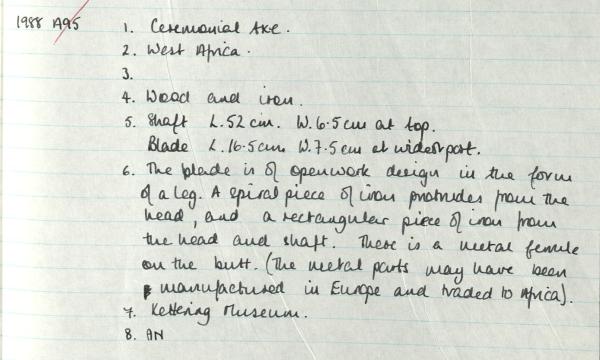 1988 A95
1. Ceremonial Axe.
2. West Africa.
3.
4. Wood and iron.
5. Shaft L.52 cm. W.6.5cm at top.
Blade L.16.5cm W.7.5cm at widest part.
6. The blade is of openwork design in the form
of a leg. A spiral piece of iron protrudes from the
head, and a rectangular piece of iron from
the head and shaft. There is a metal ferrule
on the butt. (The metal parts may have been
manufactured in Europe and traded to Africa).
7. Kettering Museum.
8. AN